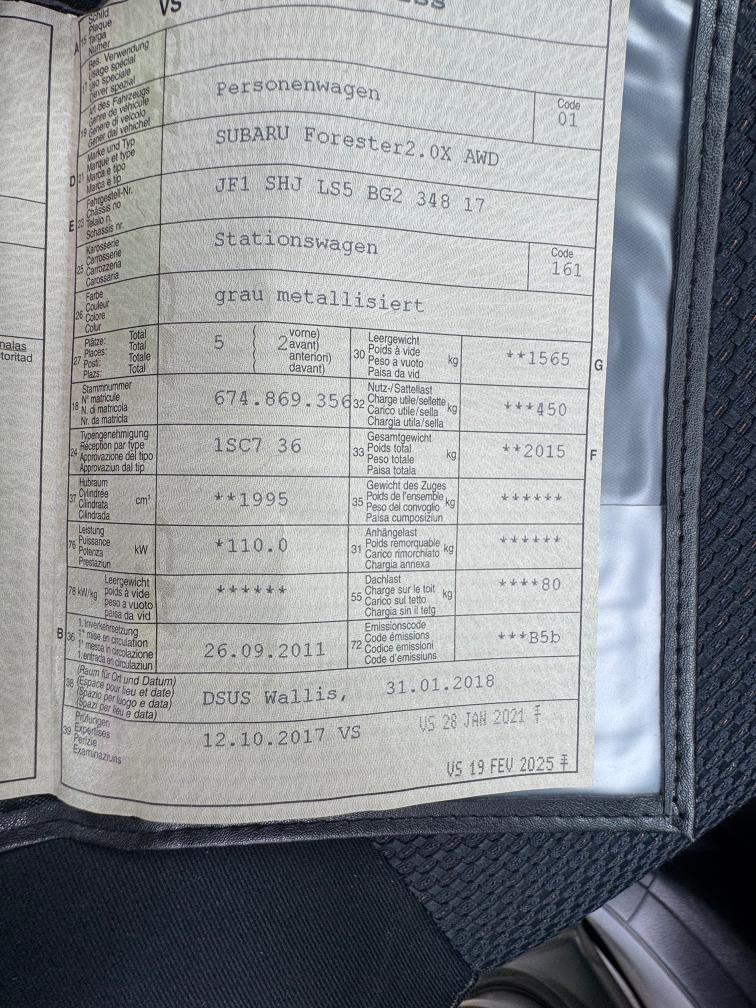 VS
Schild
Plaque
Targa
Numer
A 15
Bes. Verwendung
Usage spécial
Uso speciale
Diever spezial
17
Art des Fahrzeugs
Genre de véhicule
Genere di veicolo
Gener dal vehichel
19
Personenwagen
Code
01
D 21
Marke und Typ
Marque et type
Marca e tipo
Marca e tip
SUBARU Forester2.0X AWD
E 23
Fahrgestell-Nr.
Châssis no
Telaio n.
Schassis nr.
JF1 SHJ LS5 BG2 348 17
25
Karosserie
Carrosserie
Carrozzeria
Carossaria
Stationswagen
Code
161
26
Farbe
Couleur
Colore
Colur
grau metallisiert
27
Plätze: Total
Places: Total
Posti: Totale
Plazs: Total
5
2
vorne)
avant)
anteriori)
davant)
30
Leergewicht
Poids à vide
Peso a vuoto
Paisa da vid
kg
**1565
G
18
Stammnummer
N° matricule
N. di matricola
Nr. da matricla
674.869.356
32
Nutz-/Sattellast
Charge utile/sellette
Carico utile/sella
Chargia utila/sella
kg
***450
24
Typengenehmigung
Réception par type
Approvazione del tipo
Approvaziun dal tip
1SC7 36
33
Gesamtgewicht
Poids total
Peso totale
Paisa totala
kg
**2015
F
37
Hubraum
Cylindrée
Cilindrata
Cilindrada
cm³
**1995
35
Gewicht des Zuges
Poids de l'ensemble
Peso del convoglio
Paisa cumposiziun
kg
******
76
Leistung
Puissance
Potenza
Prestaziun
kW
*110.0
31
Anhängelast
Poids remorquable
Carico rimorchiato
Chargia annexa
kg
******
78 kW/kg
Leergewicht
poids à vide
peso a vuoto
paisa da vid
******
55
Dachlast
Charge sur le toit
Carico sul tetto
Chargia sin il tetg
kg
****80
B 36
1. Inverkehrsetzung
1re mise en circulation
1a messa in circolazione
1. entrada en circulaziun
26.09.2011
72
Emissionscode
Code émissions
Codice emissioni
Code d'emissiuns
***B5b
38
(Raum für Ort und Datum)
(Espace pour lieu et date)
(Spazio per luogo e data)
(Spazi per lieu e data)
DSUS Wallis, 31.01.2018
39
Prüfungen
Expertises
Perizie
Examinaziuns
12.10.2017 VS
VS 28 JAN 2021
VS 19 FEV 2025
nalas
toritad